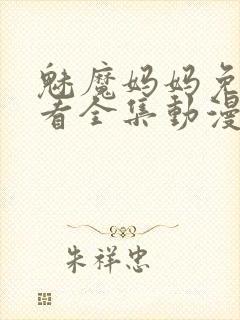 魅魔妈妈免
看全集動漫
朱祥忠